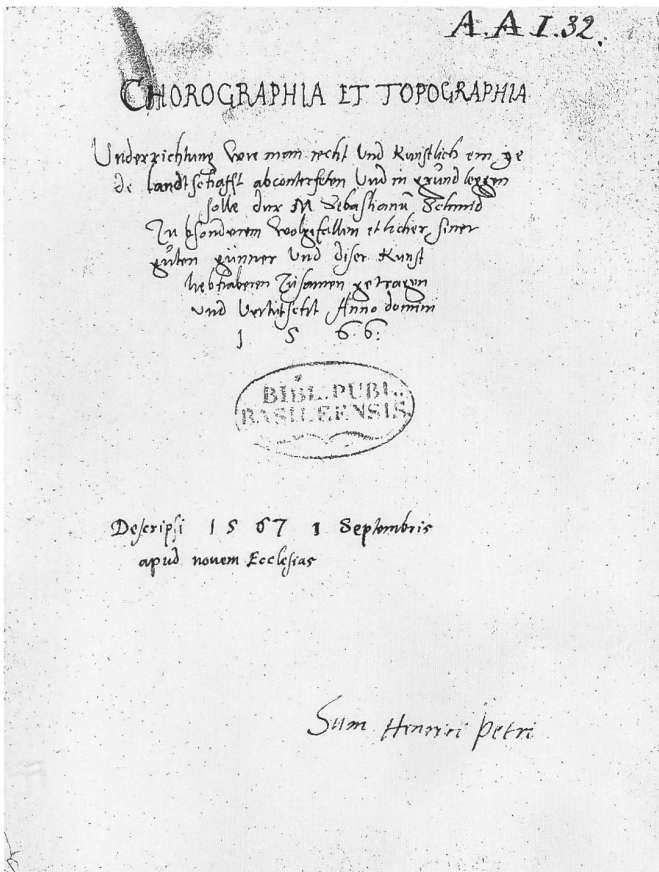 A.A I.32.
CHOROGRAPHIA ET TOPOGRAPHIA
Underrichtung wie man recht und Kunstlich ein ye
de landtschafft abconterfeten und in grŭnd leggen
solle dur M Sebastianū Schmid
Zu bsonderem wolgefallen etlicher siner
gŭten günner und diser Kunst
liebhaberen Zusamen getragen
und vertütscht Anno domini
1 5 6 6.
BIBL. PUBL.
BASILEENSIS
Descripsi 1 5 6 7 1 Septembris
apud novem Ecclesias
Sum Henrici Petri